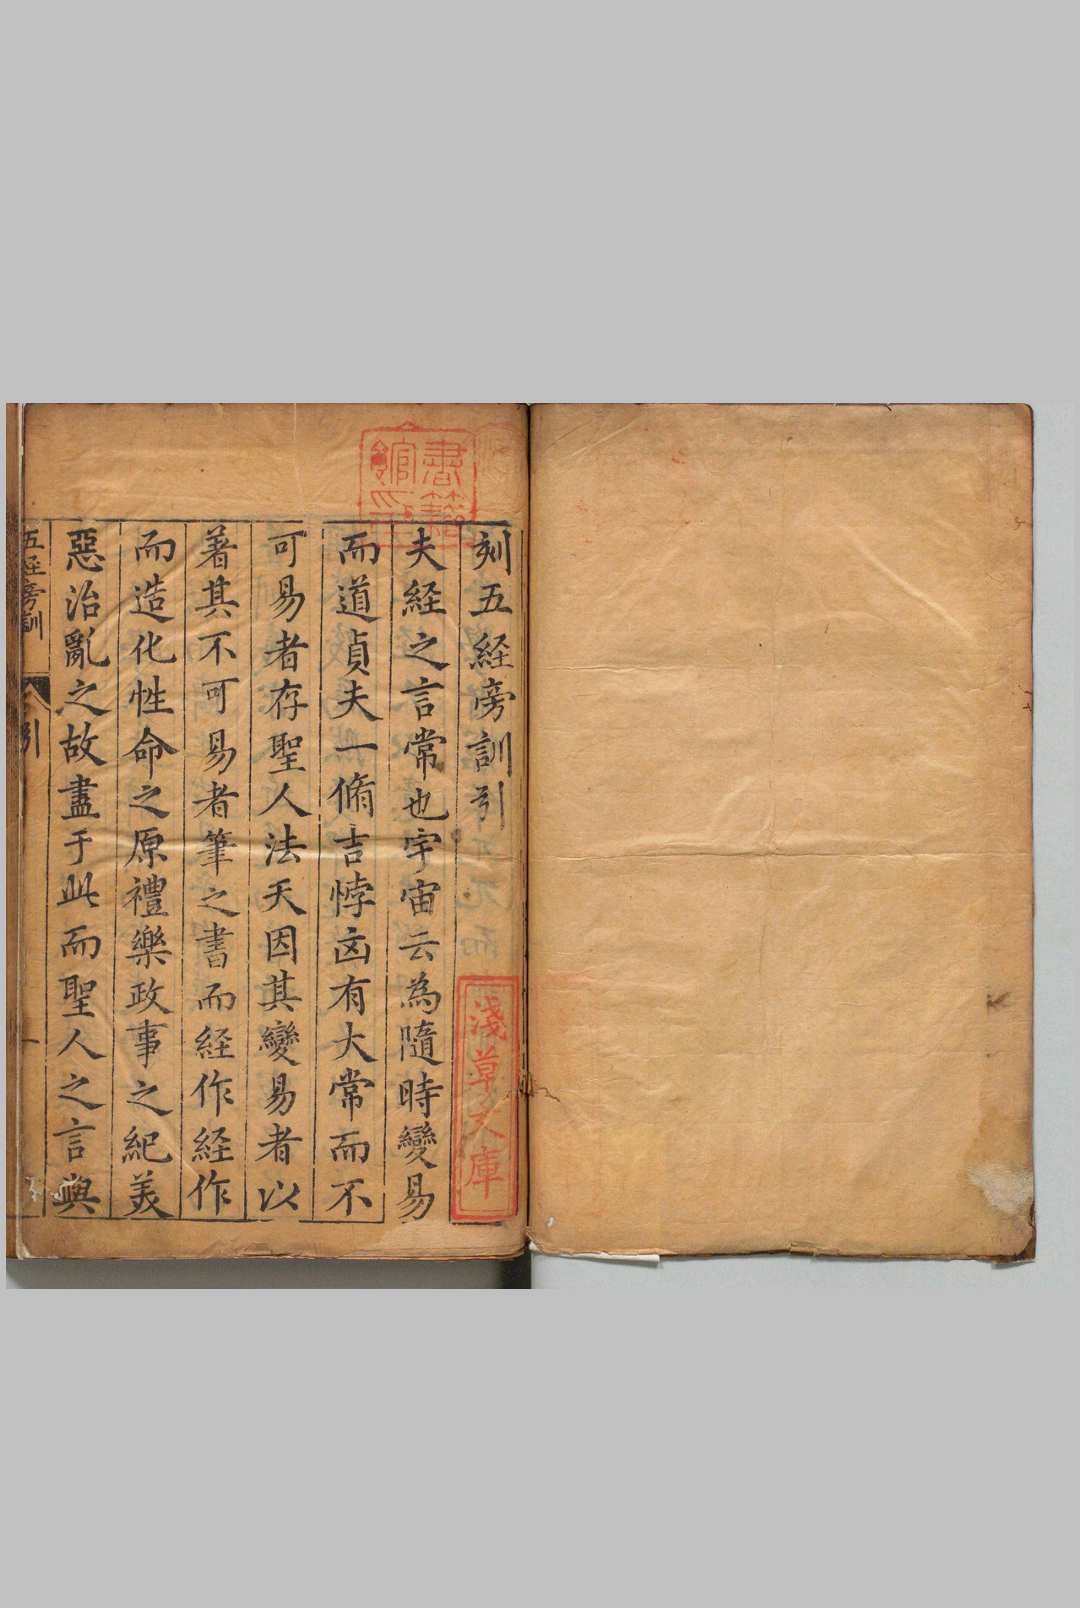 刻五経旁訓引
夫経之言常也宇宙云為隨時變易
而道貞夫一脩吉悖凶有大常而不
可易者存聖人法天因其變易者以
著其不可易者筆之書而経作経作
而造化性命之原禮樂政事之紀美
惡治亂之故盡于此而聖人之言與
五経旁訓
引
一
書籍館印
淺草文庫